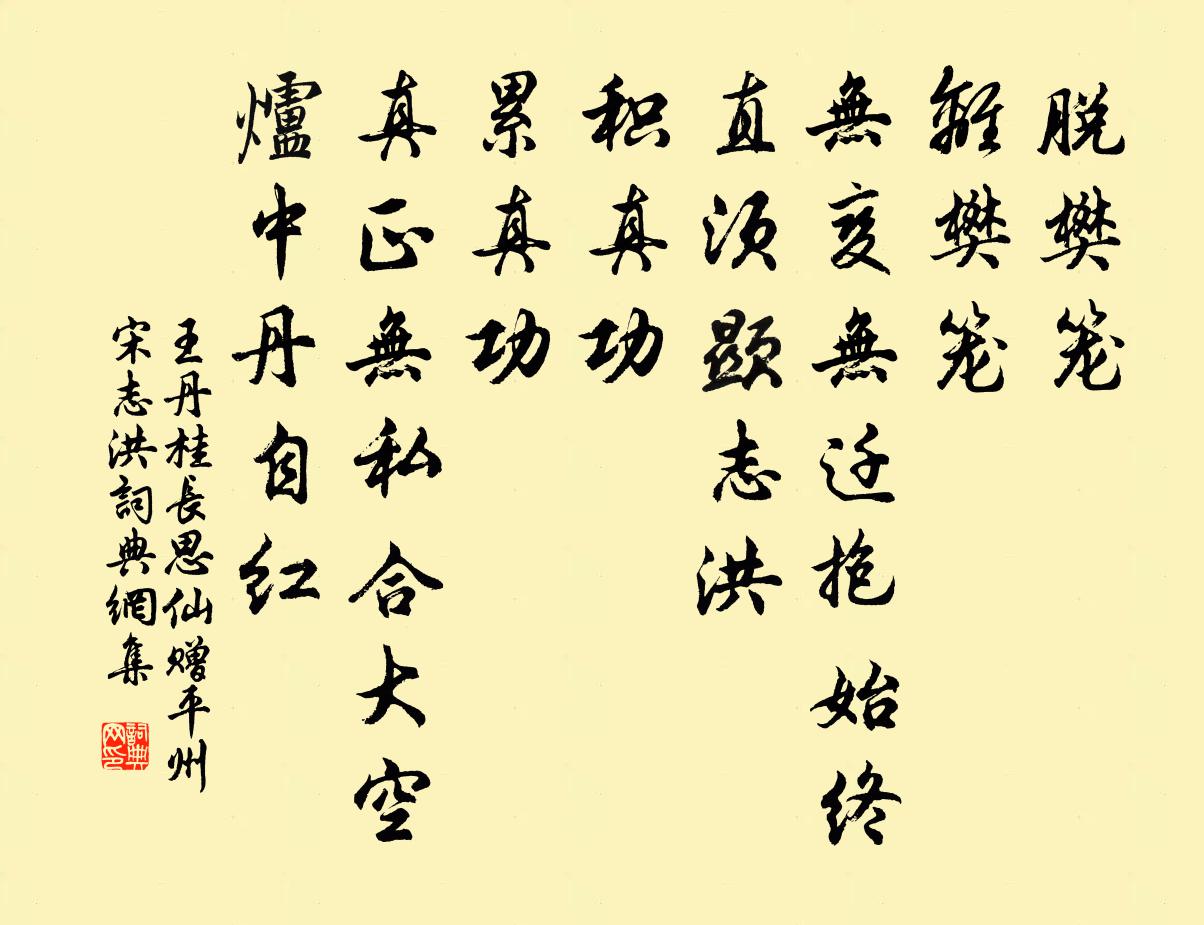 脱樊笼
離樊笼
無变無迁抱始终
直须顕志洪
积真功
累真功
真正無私合大空
爐中丹自红
王丹桂長思仙赠平州
宋志洪詞典網集
詞典网印